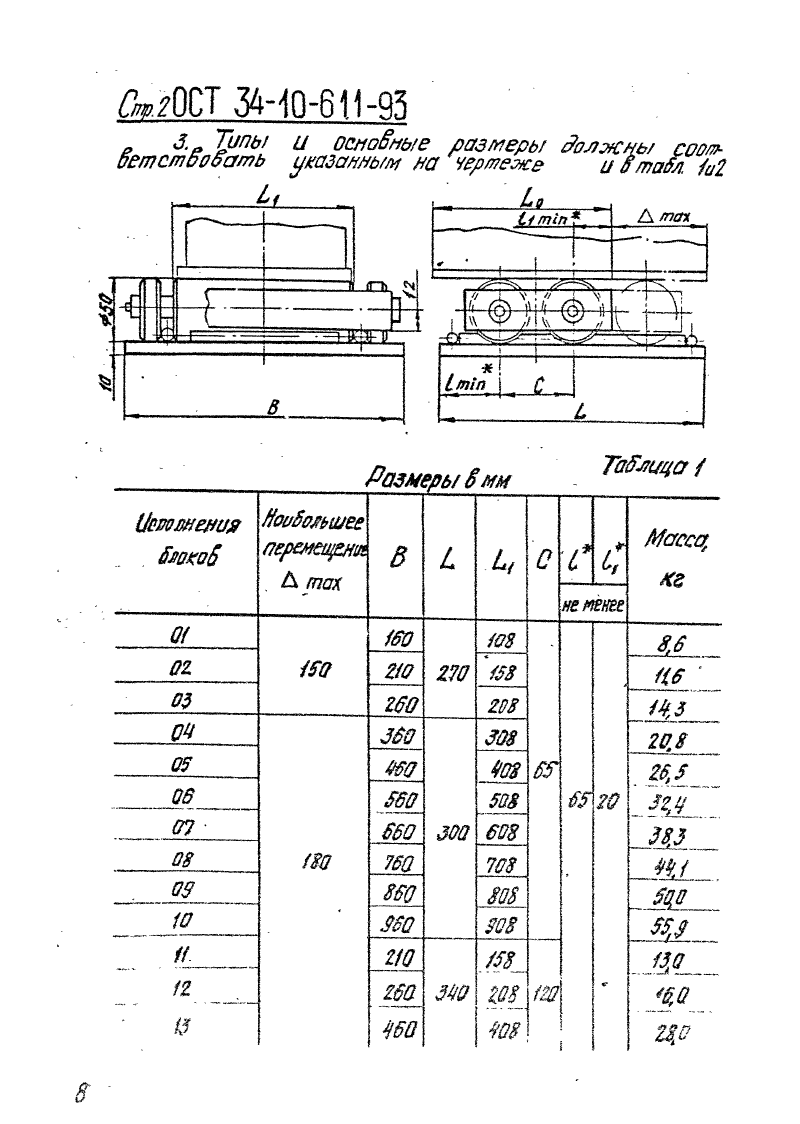 Стр.2 ОСТ 34-10-611-93
3. Типы и основные размеры должны соот-
ветствовать указанным на чертеже и в табл. 1и2
L1
L0
l1 min*
Δ max
ϕ50
12
10
B
l min*
C
L
Таблица 1
Размеры в мм
Исполнения блоков Наибольшее перемещение Δ max B L L1 C l* l1* Масса, кг
не менее
01 150 160 270 108 65 65 20 8,6
02 210 158 11,6
03 260 208 14,3
04 180 360 300 308 20,8
05 460 408 26,5
06 560 508 32,4
07 660 608 38,3
08 760 708 44,1
09 860 808 50,0
10 960 908 55,9
11 210 340 158 120 13,0
12 260 208 16,0
13 460 408 28,0
8